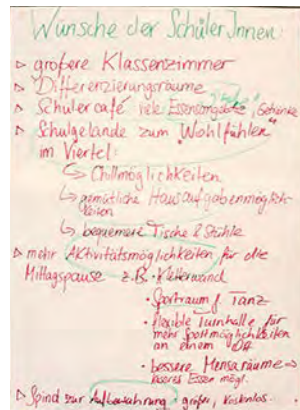 Wünsche der SchülerInnen:
▷ größere Klassenzimmer
▷ Differenzierungsräume
▷ Schülercafé viele Essensangebote, Getränke
▷ Schulgelände zum "Wohlfühlen"
im Viertel:
↳ Chillmöglichkeiten
↳ gemütliche Hausaufgabenmöglich-
keiten
↳ bequemere Tische & Stühle
▷ mehr Aktivitätsmöglichkeiten für die
Mittagspause z.B. · Kletterwand
· Sportraum f. Tanz
· flexible Turnhalle für
mehr Sportmöglichkeiten
an einem
· bessere Mensaräume ⇒
besseres Essen mögl.
▷ Spind zur Aufbewahrung - größer, kostenlos.